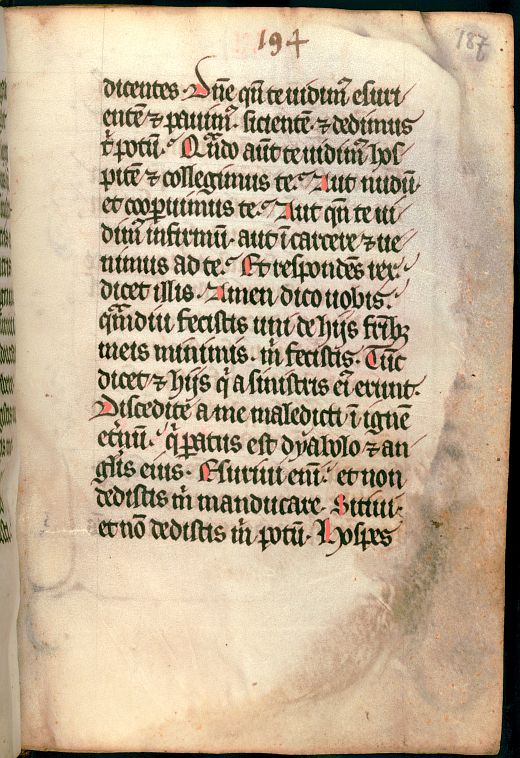 194
187
dicentes. Dñe qn̄ te uidimꝰ esuri
entē ⁊ pauimꝰ. sicientē. ⁊ dedimus
t̄ potū. Qn̄do aūt te uidimꝰ hos
pitē ⁊ collegimus te. Aut nudū.
et coopuimus te. Aut qn̄ te ui
dimꝰ infirmū. aut ī carcere ⁊ ue
nimus ad te. Et respondēs rex.
dicet illis. Amen dico uobis.
qm̄diu fecistis uni de hijs frībꝫ
meis minimis. m̄ fecistis. Tūc
dicet ⁊ hijs q̄ a sinistris eī erunt.
Discedite a me maledicti ī ignē
et̄nū. q̄ ꝑatus est dyabolo ⁊ an
gl̄is eius. Esuriui enī. et non
dedistis m̄ manducare. Sitiui.
et nō dedistis m̄ potū. Hospes